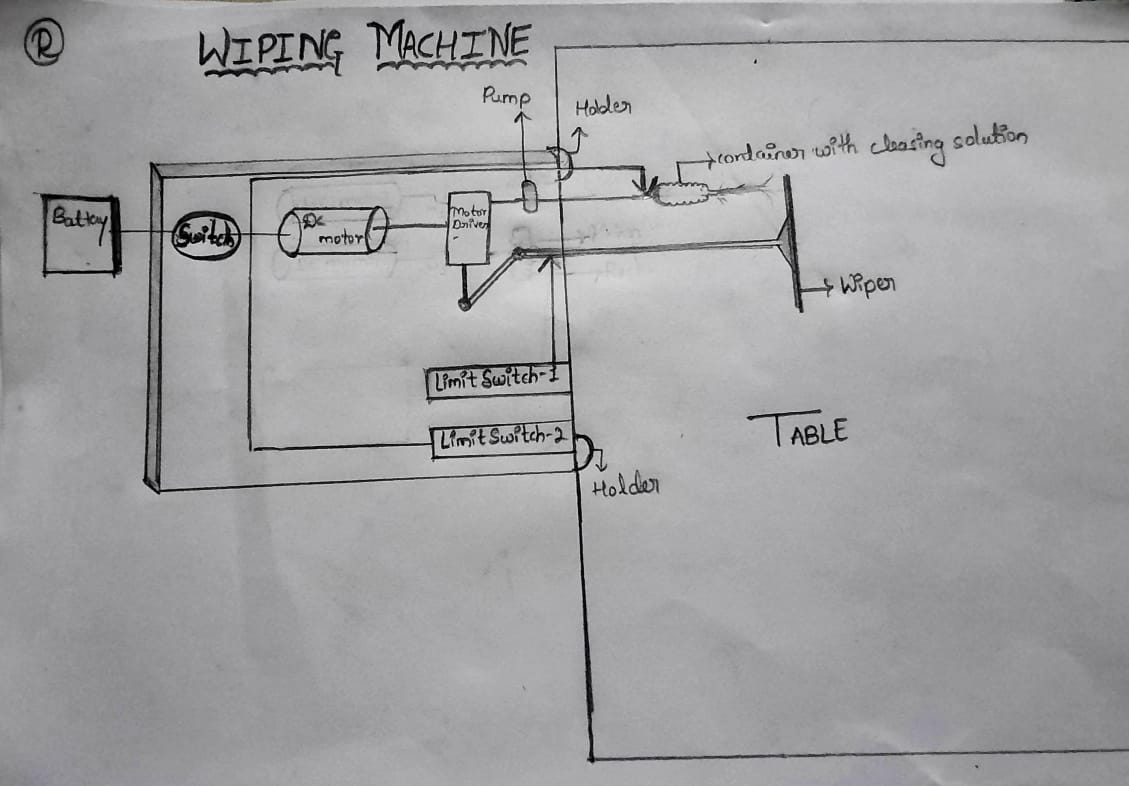 R
WIPING MACHINE
Pump
Holder
container with cleasing solution
Battery
Switch
DC
motor
Motor
Driver
Wiper
Limit Switch-1
Limit Switch-2
TABLE
Holder